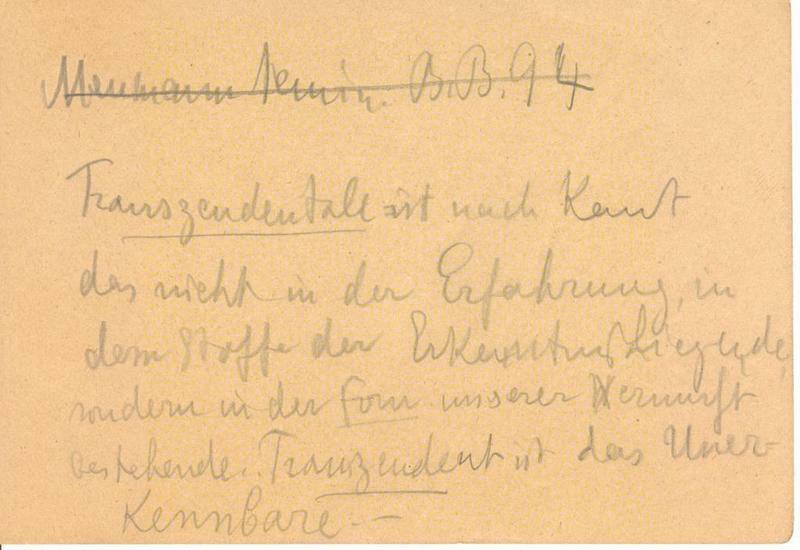 B.B. 94
Transzendentale ist nach Kant
das nicht in der Erfahrung, in
dem Stoffe der Erkenntnis Liegende,
sondern in der Form unserer Vernunft
bestehende. Tranzendent ist das Uner-
kennbare. –